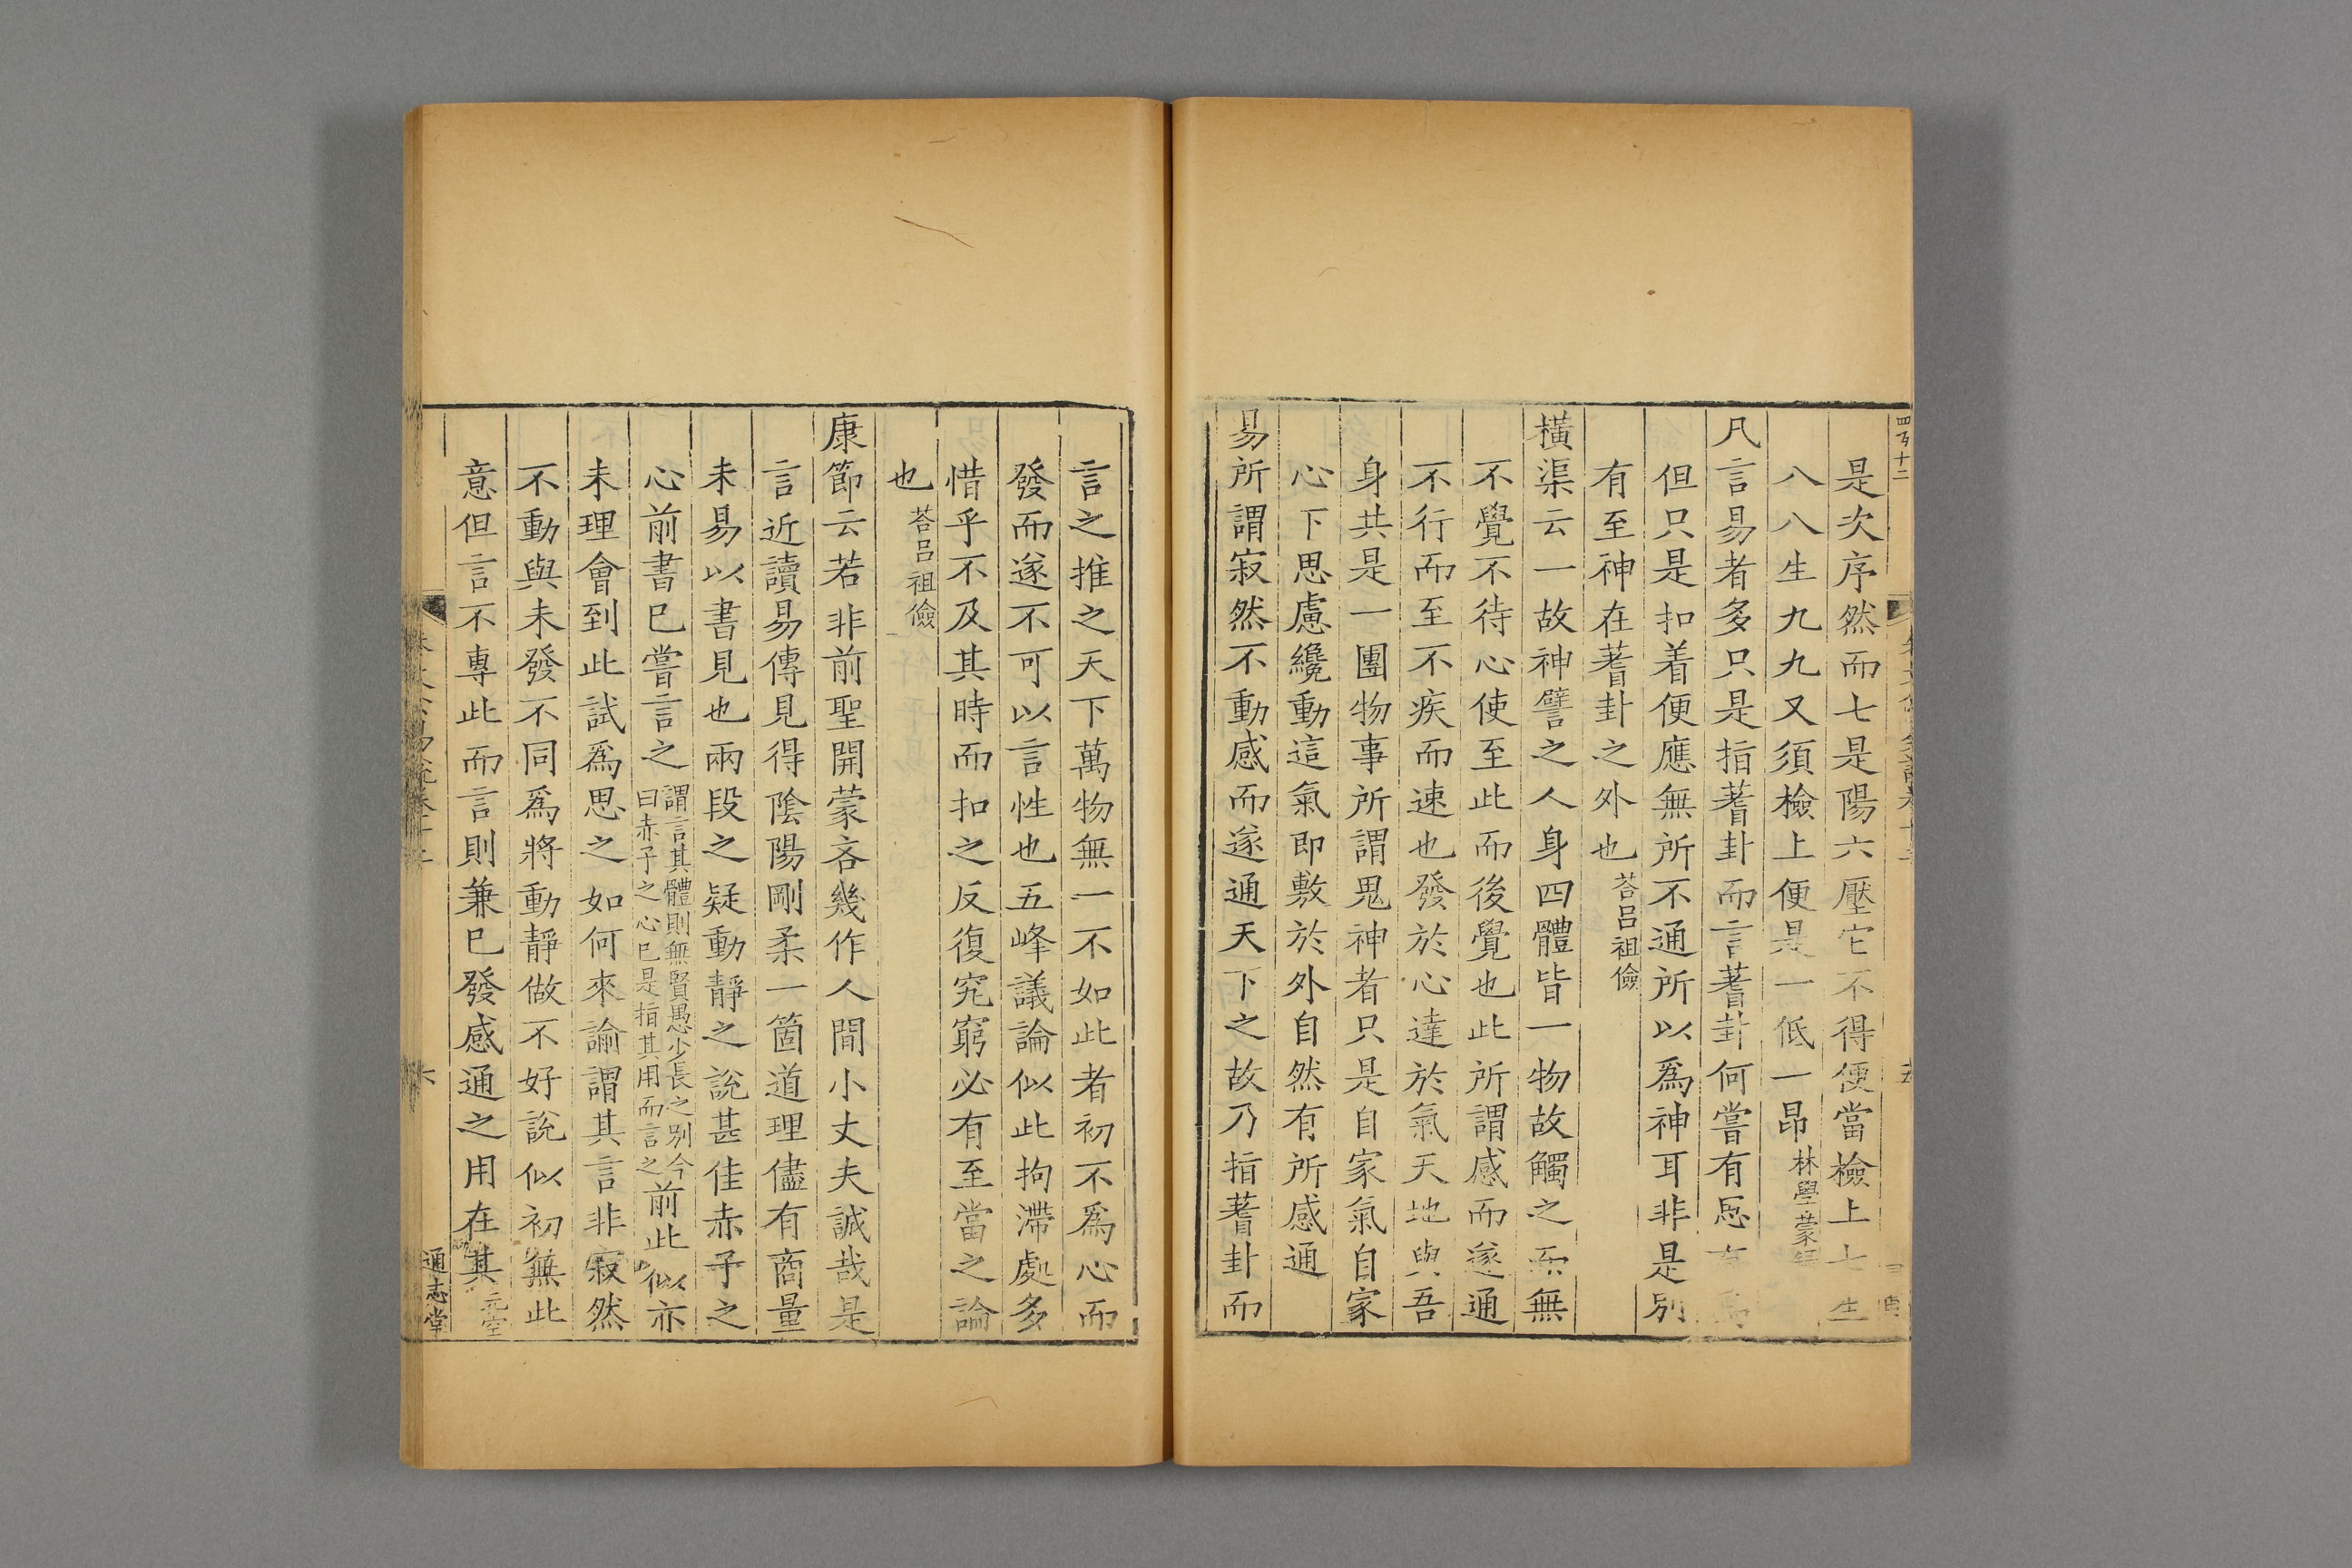 是次序然而七是陽六壓它不得便當檢上七生
八八生九九又須檢上便是一低一昂林學蒙
凡言易者多只是指蓍卦而言蓍卦何嘗有思有爲
但只是扣着便應無所不通所以爲神耳非是別
有至神在蓍卦之外也荅呂祖儉
橫渠云一故神譬之人身四體皆一物故觸之而無
不覺不待心使至此而後覺也此所謂感而遂通
不行而至不疾而速也發於心達於氣天地與吾
身共是一團物事所謂鬼神者只是自家氣自家
心下思慮纔動這氣即敷於外自然有所感通
易所謂寂然不動感而遂通天下之故乃指蓍卦而
言之推之天下萬物無一不如此者初不爲心而
發而遂不可以言性也五峰議論似此拘滯處多
惜乎不及其時而扣之反復究窮必有至當之論
也荅呂祖儉
康節云若非前聖開蒙吝幾作人間小丈夫誠哉是
言近讀易傳見得陰陽剛柔一箇道理儘有商量
未易以書見也兩段之疑動靜之說甚佳赤子之
心前書已嘗言之謂言其體則無賢愚少長之別今曰赤子之心已是指其用而言之前此似亦
未理會到此試爲思之如何來諭謂其言非寂然
不動與未發不同爲將動靜做不好說似初無此
意但言不專此而言則兼已發感通之用在其
通志堂